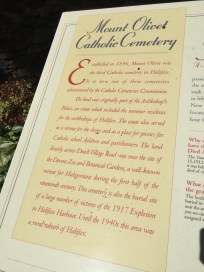 Mount Olivet
Catholic Cemetery
Established in 1896, Mount Olivet was
the third Catholic cemetery in Halifax.
It is now one of three cemeteries
administered by the Catholic Cemeteries Commission.
The land was originally part of the Archbishop's
Palace, an estate which included the summer residence
for the archbishops of Halifax. The estate also served
as a retreat for the clergy and as a place for picnics for
Catholic school children and parishioners. The land
directly across Dutch Village Road was once the site of
the Downs Zoo and Botanical Gardens, a well-known
venue for Haligonians during the first half of the
nineteenth century. This cemetery is also the burial site
of a large number of victims of the 1917 Explosion
in Halifax Harbour. Until the 1940s this area was
a rural suburb of Halifax.